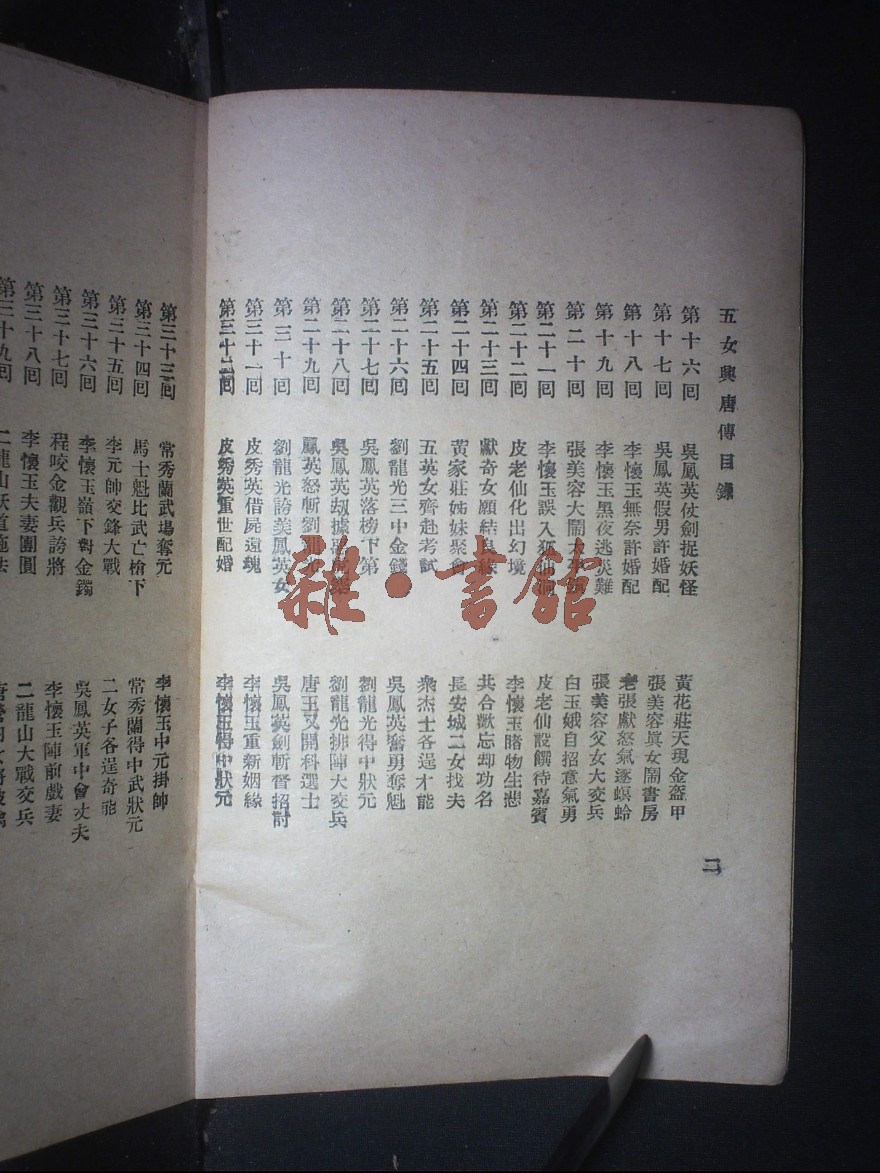 五女興唐傳目錄
第十六回 吳鳳英仗劍捉妖怪 黃花莊天現金盔甲
第十七回 吳鳳英假男許婚配 張美容眞女鬧書房
第十八回 李懷玉無奈許婚配 老張獻怒氣逐螟蛉
第十九回 李懷玉黑夜逃災難 張美容父女大交兵
第二十回 張美容大鬧大 白玉娥自招意氣勇
第二十一回 李懷玉誤入狐仙洞 皮老仙設饌待嘉賓
第二十二回 皮老仙化出幻境 李懷玉睹物生悲
第二十三回 獻奇女願結良緣 共合歡忘却功名
第二十四回 黃家莊姊妹聚會 長安城二女找夫
第二十五回 五英女齊赴考試 衆杰士各逞才能
第二十六回 劉龍光三中金錢 吳鳳英奮勇奪魁
第二十七回 吳鳳英落榜下第 劉龍光得中狀元
第二十八回 吳鳳英刼據 劉龍光排陣大交兵
第二十九回 鳳英怒斬劉龍光 唐王又開科選士
第三十回 劉龍光誇美鳳英女 吳鳳英劍斬督招討
第三十一回 皮秀英借屍還魂 李懷玉重新姻緣
第三十二回 皮秀英重世配婚 李懷玉得中狀元
二
第三十三回 常秀蘭武場奪元 李懷玉中元掛帥
第三十四回 馬士魁比武亡槍下 常秀蘭得中武狀元
第三十五回 李元帥交鋒大戰 二女子各逞奇能
第三十六回 李懷玉嶺下對金鐲 吳鳳英軍中會丈夫
第三十七回 程咬金觀兵誇將 李懷玉陣前戲妻
第三十八回 李懷玉夫妻團圓 二龍山大戰交兵
第三十九回 二龍山妖道施法
雜·書館